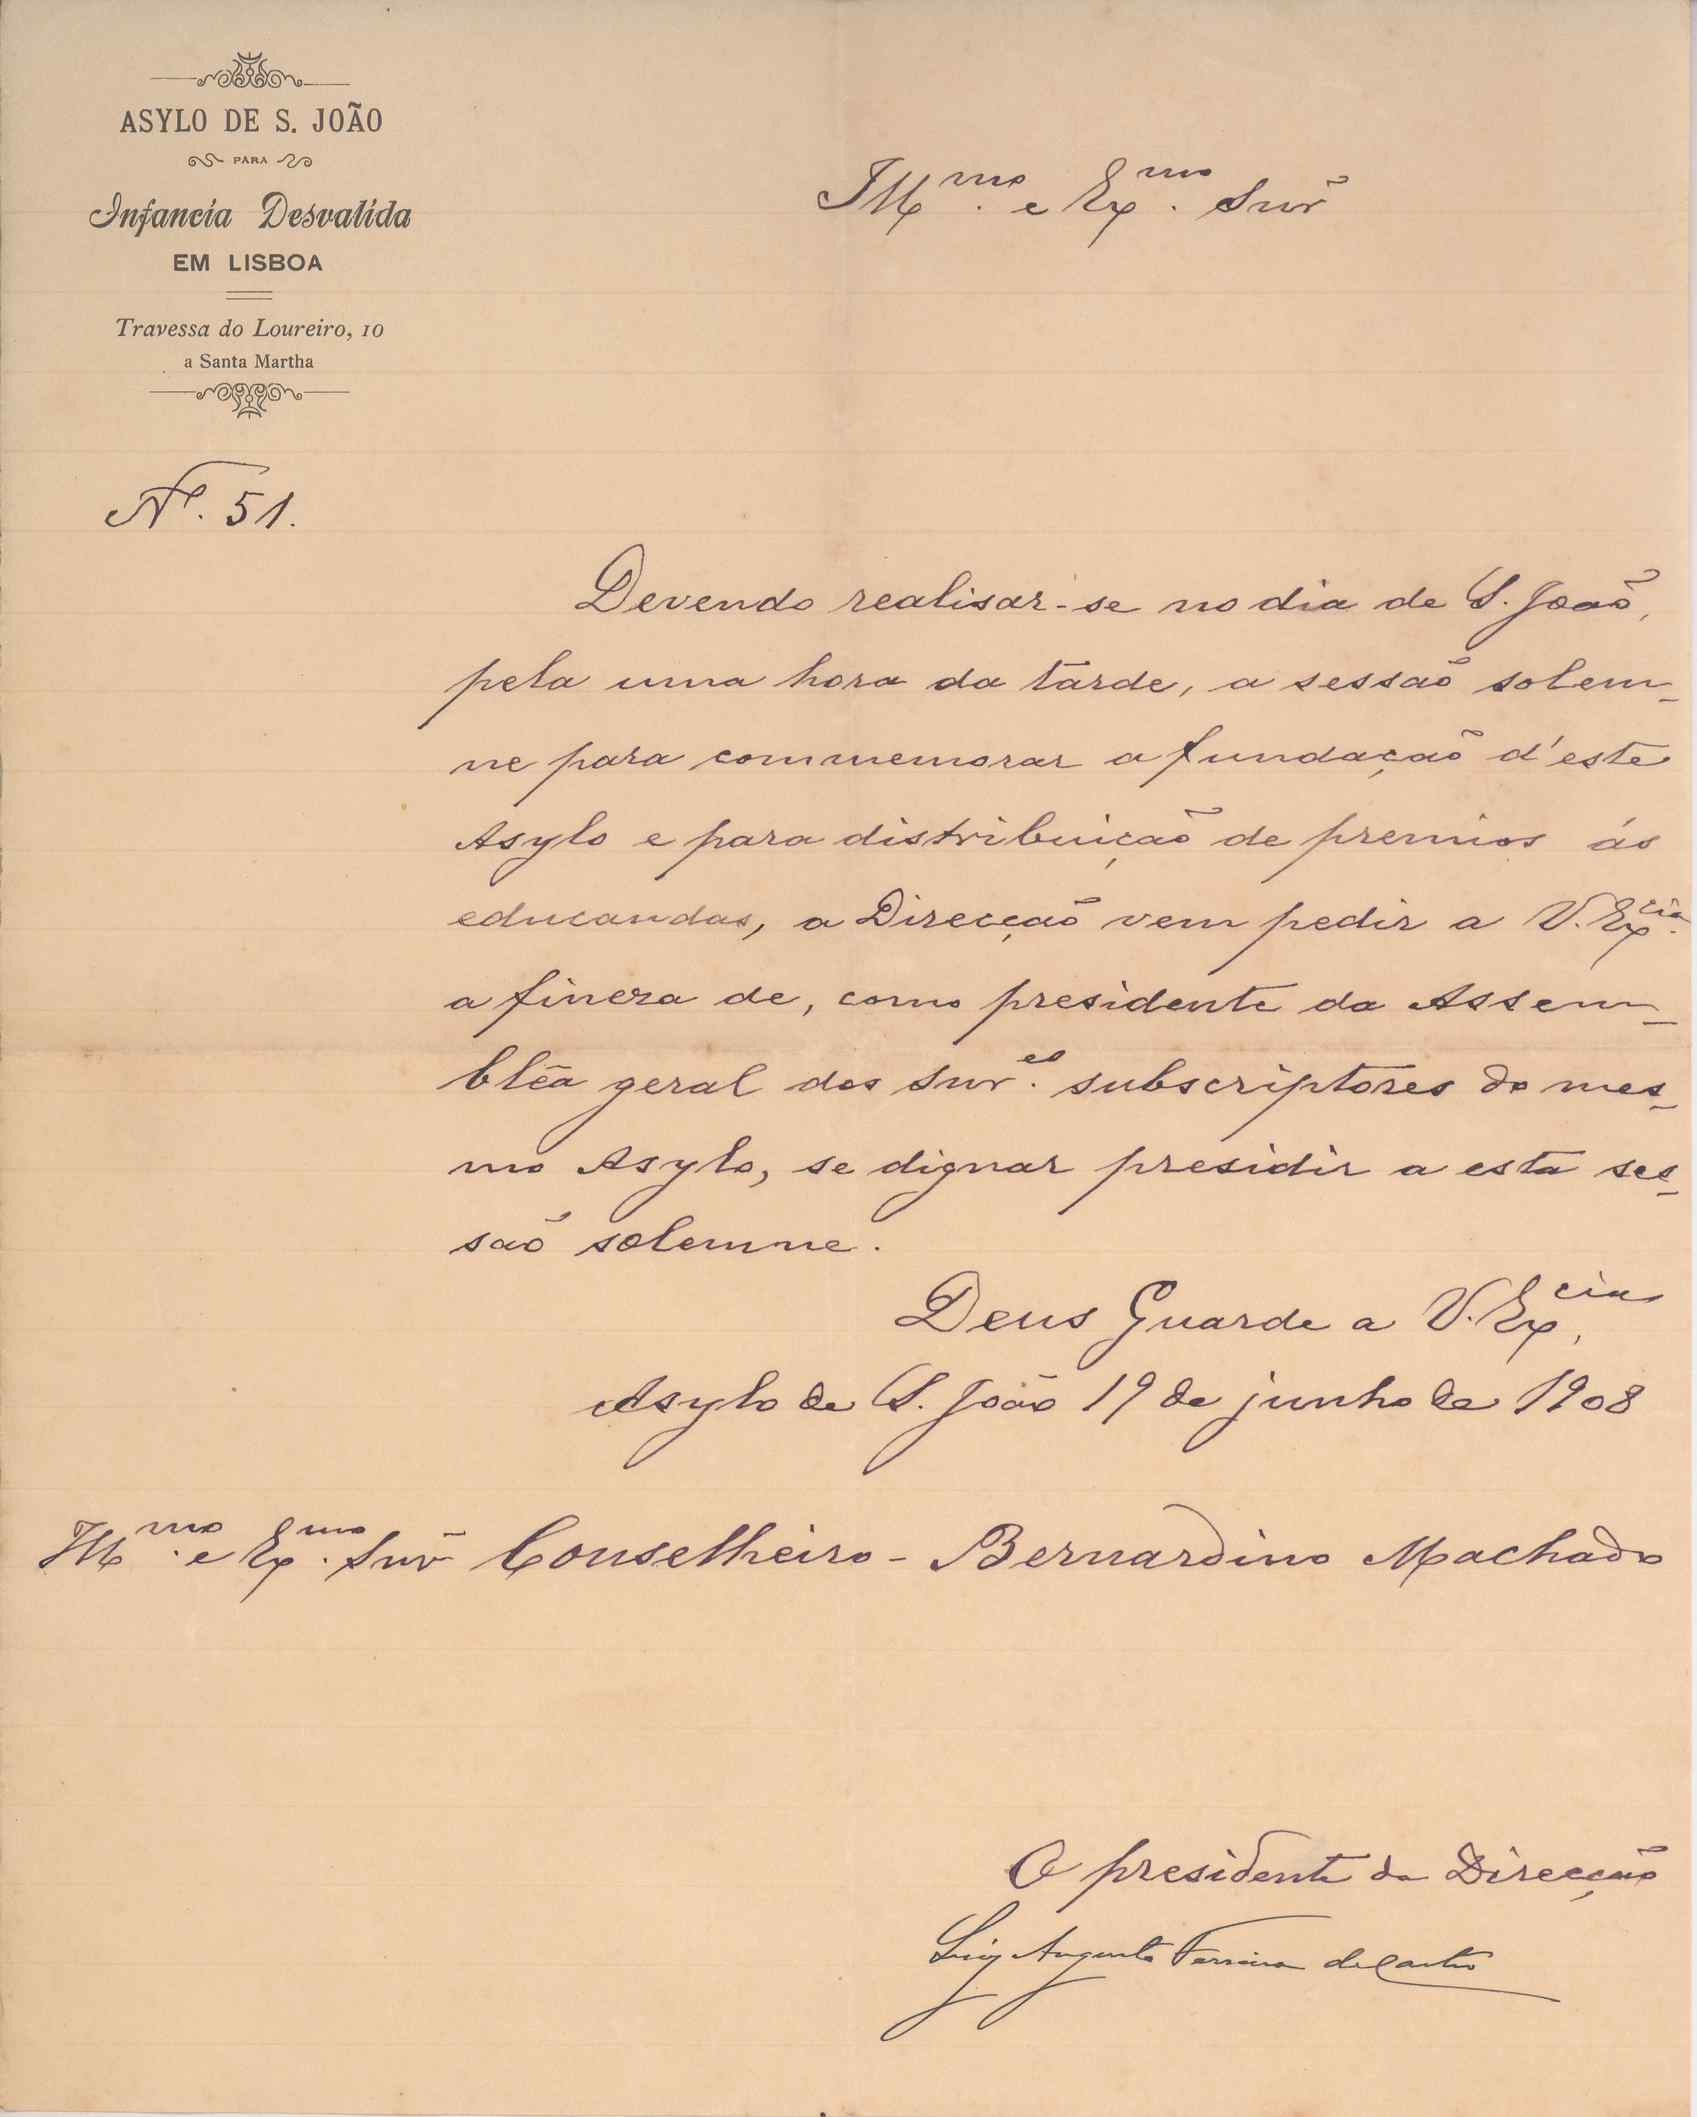 ASYLO DE S. JOÃO
PARA
Infancia Desvalida
EM LISBOA
Travessa do Loureiro, 10
a Santa Martha
Illmo. e Exmo. Snr
Nº. 51.
Devendo realisar-se no dia de S. João,
pela uma hora da tarde, a sessão solem-
ne para commemorar a fundação d'este
Asylo e para distribuição de premios ás
educandas, a Direcção vem pedir a V. Excia.
a fineza de, como presidente da Assem-
bléa geral dos Snres. subscriptores do mes-
mo Asylo, se dignar presidir a esta ses-
são solemne.
Deus Guarde a V. Excia.
Asylo de S. João 19 de junho de 1908
Illmo. e Exmo. Snr Conselheiro - Bernardino Machado
O presidente da Direcção
Luiz Augusto Ferreira de Castro